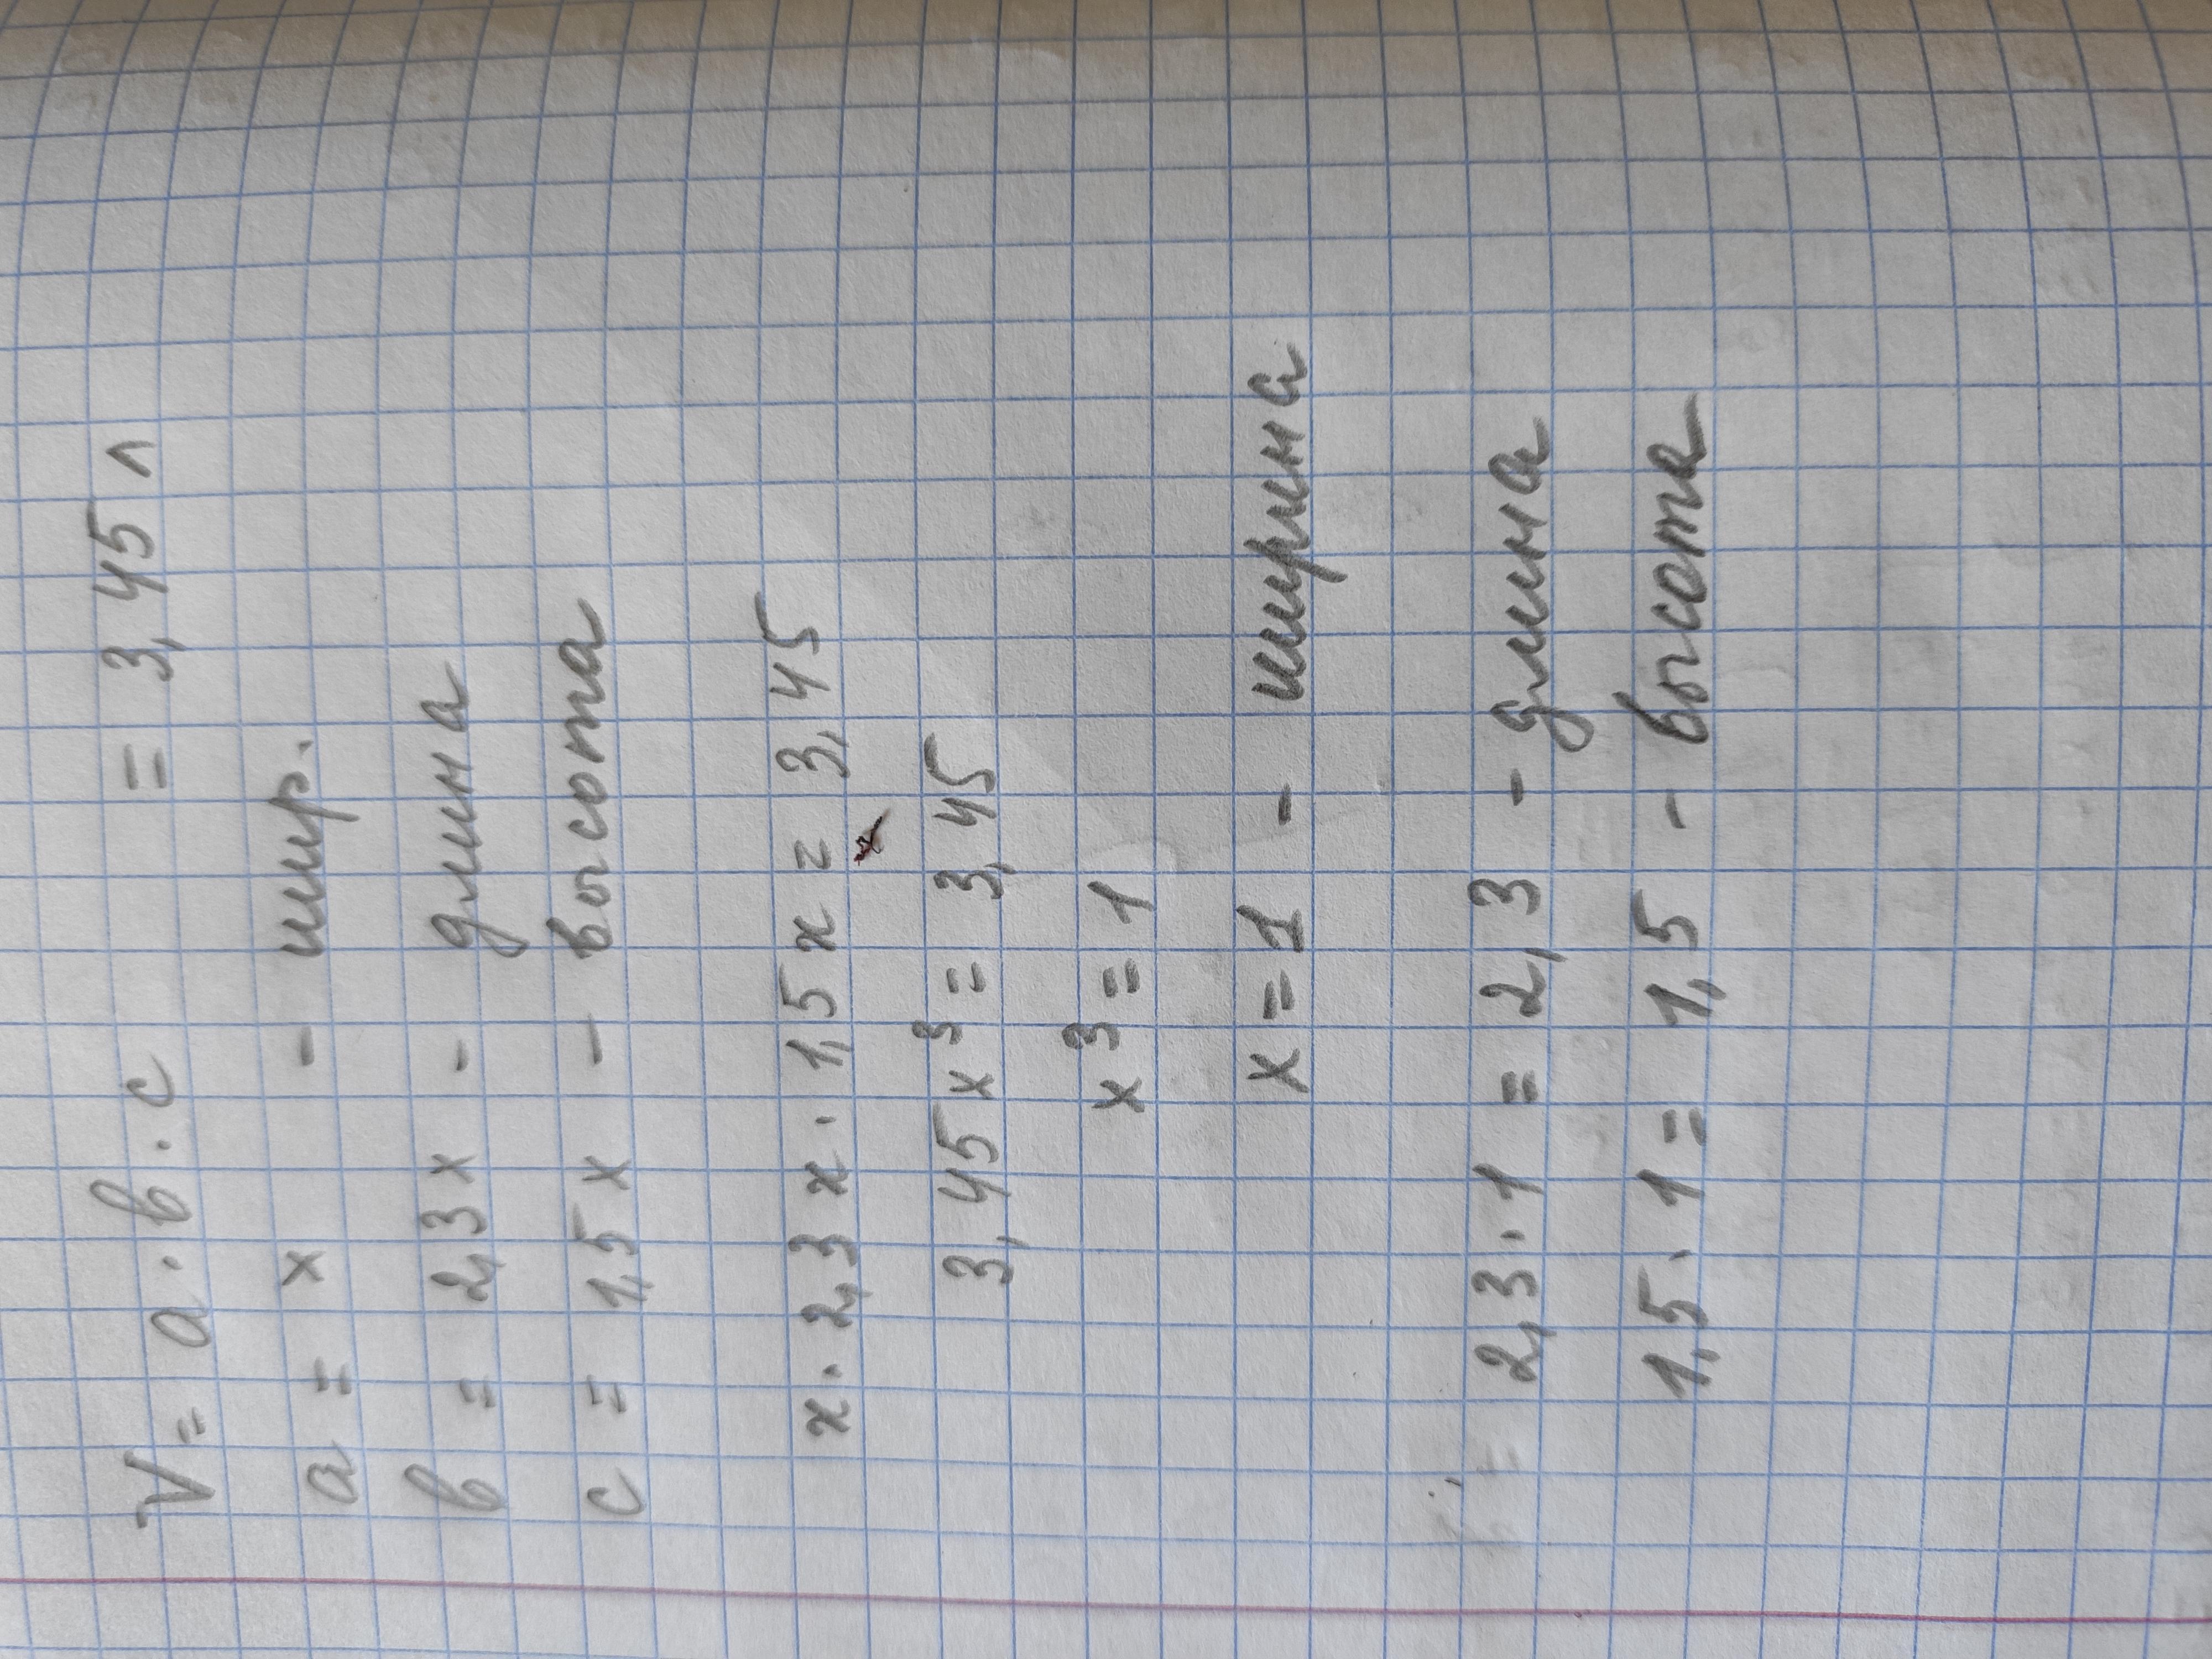 V = a · в · c = 3,45 л
a = x - шир.
в = 2,3x - длина
c = 1,5x - высота
x · 2,3x · 1,5x = 3,45
3,45x³ = 3,45
x³ = 1
x = 1 - ширина
2,3 · 1 = 2,3 - длина
1,5 · 1 = 1,5 - высота